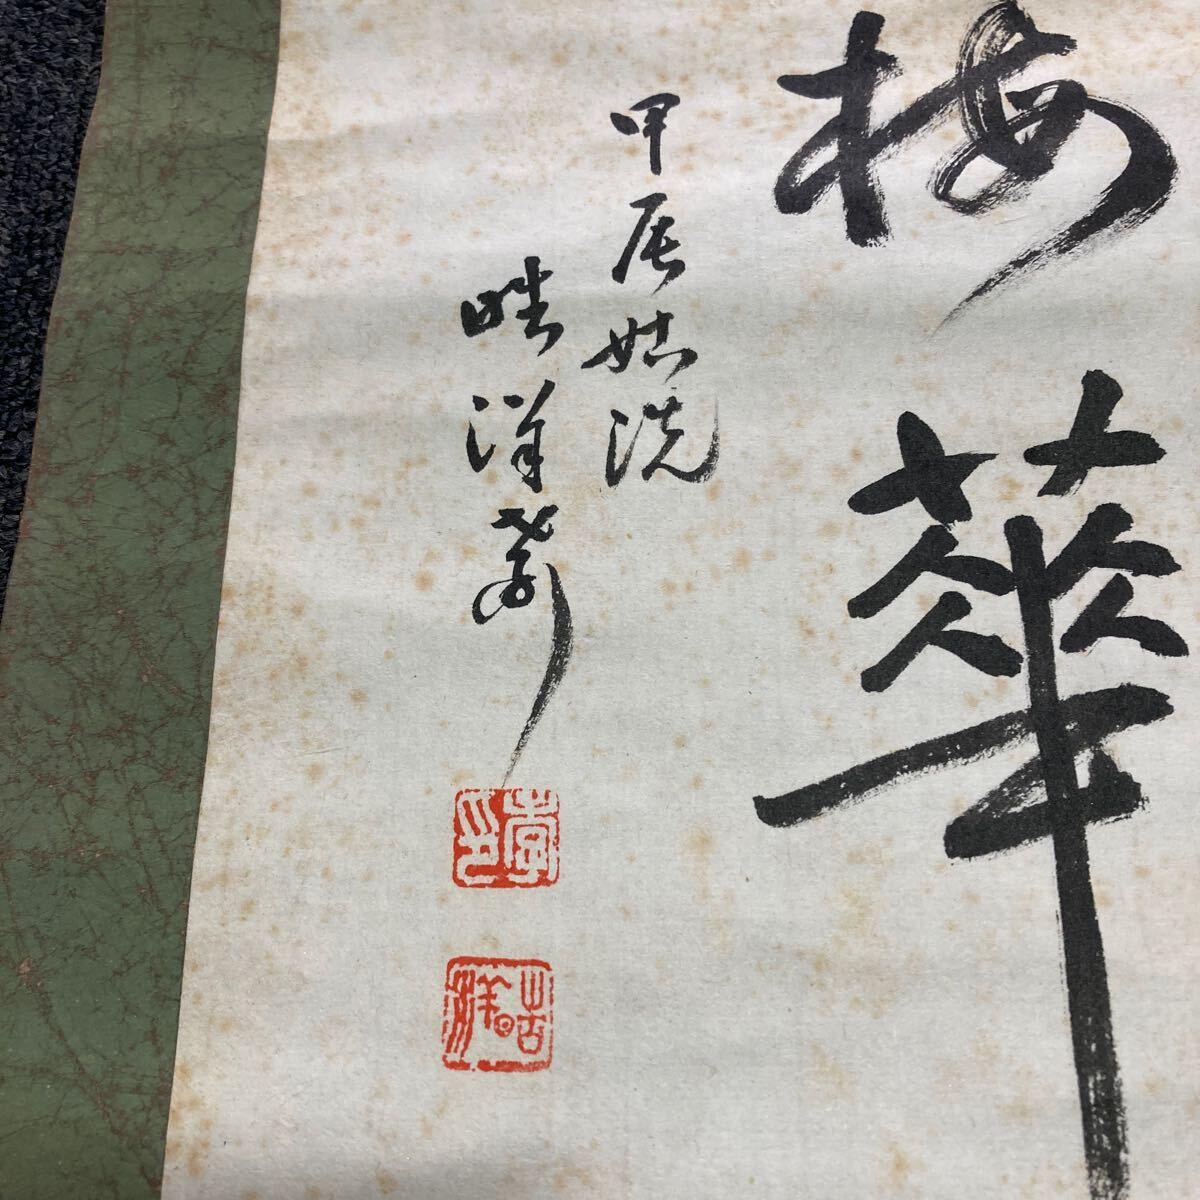 梅華
甲辰姑洗
晧洋
晧洋